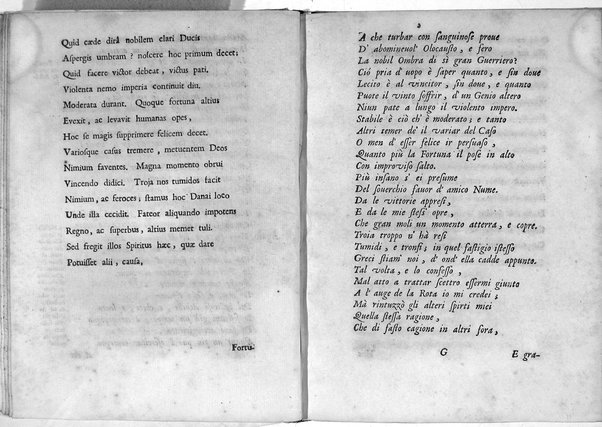 Quid cæde dirâ nobilem clari Ducis
Aspergis umbram? noscere hoc primum decet;
Quid facere victor debeat, victus pati.
Violenta nemo imperia continuit diu.
Moderata durant. Quoque fortuna altius
Evexit, ac levavit humanas opes,
Hoc se magis supprimere felicem decet.
Variosque casus tremere, metuentem Deos
Nimium faventes. Magna momento obrui
Vincendo didici. Troja nos tumidos facit
Nimium, ac feroces; stamus hoc Danai loco
Unde illa cecidit. Fateor aliquando impotens
Regno, ac superbus, altius memet tuli.
Sed fregit illos Spiritus hæc, quæ dare
Potuisset alii, causa,
Fortu-
A che turbar con sanguinose prove
D' abominevol' Olocausto, e fero
La nobil Ombra di sì gran Guerriero?
Ciò pria d' uopo è saper quanto, e sin dove
Lecito è al vincitor, sin dove, e quanto
Puote il vinto soffrir, d' un Genio altero
Niun pate a lungo il violento impero.
Stabile è ciò ch' è moderato; e tanto
Altri temer de' il variar del Caso
O men d' esser felice ir persuaso,
Quanto più la Fortuna il pose in alto
Con improviso salto.
Più insano s' ei presume
Del soverchio favor d' amico Nume.
Da le vittorie appresi,
E da le mie stess' opre,
Che gran moli un momento atterra, e copre.
Troia troppo n' hà resi
Tumidi, e tronfi; in quel fastigio istesso
Greci stiam' noi, d' ond' ella cadde appunto.
Tal volta, e lo confesso,
Mal atto a trattar scettro essermi giunto
A l' auge de la Rota io mi credei;
Mà rintuzzò gli alteri spirti miei
Quella stessa ragione,
Che di fasto cagione in altri fora,
G E gra-